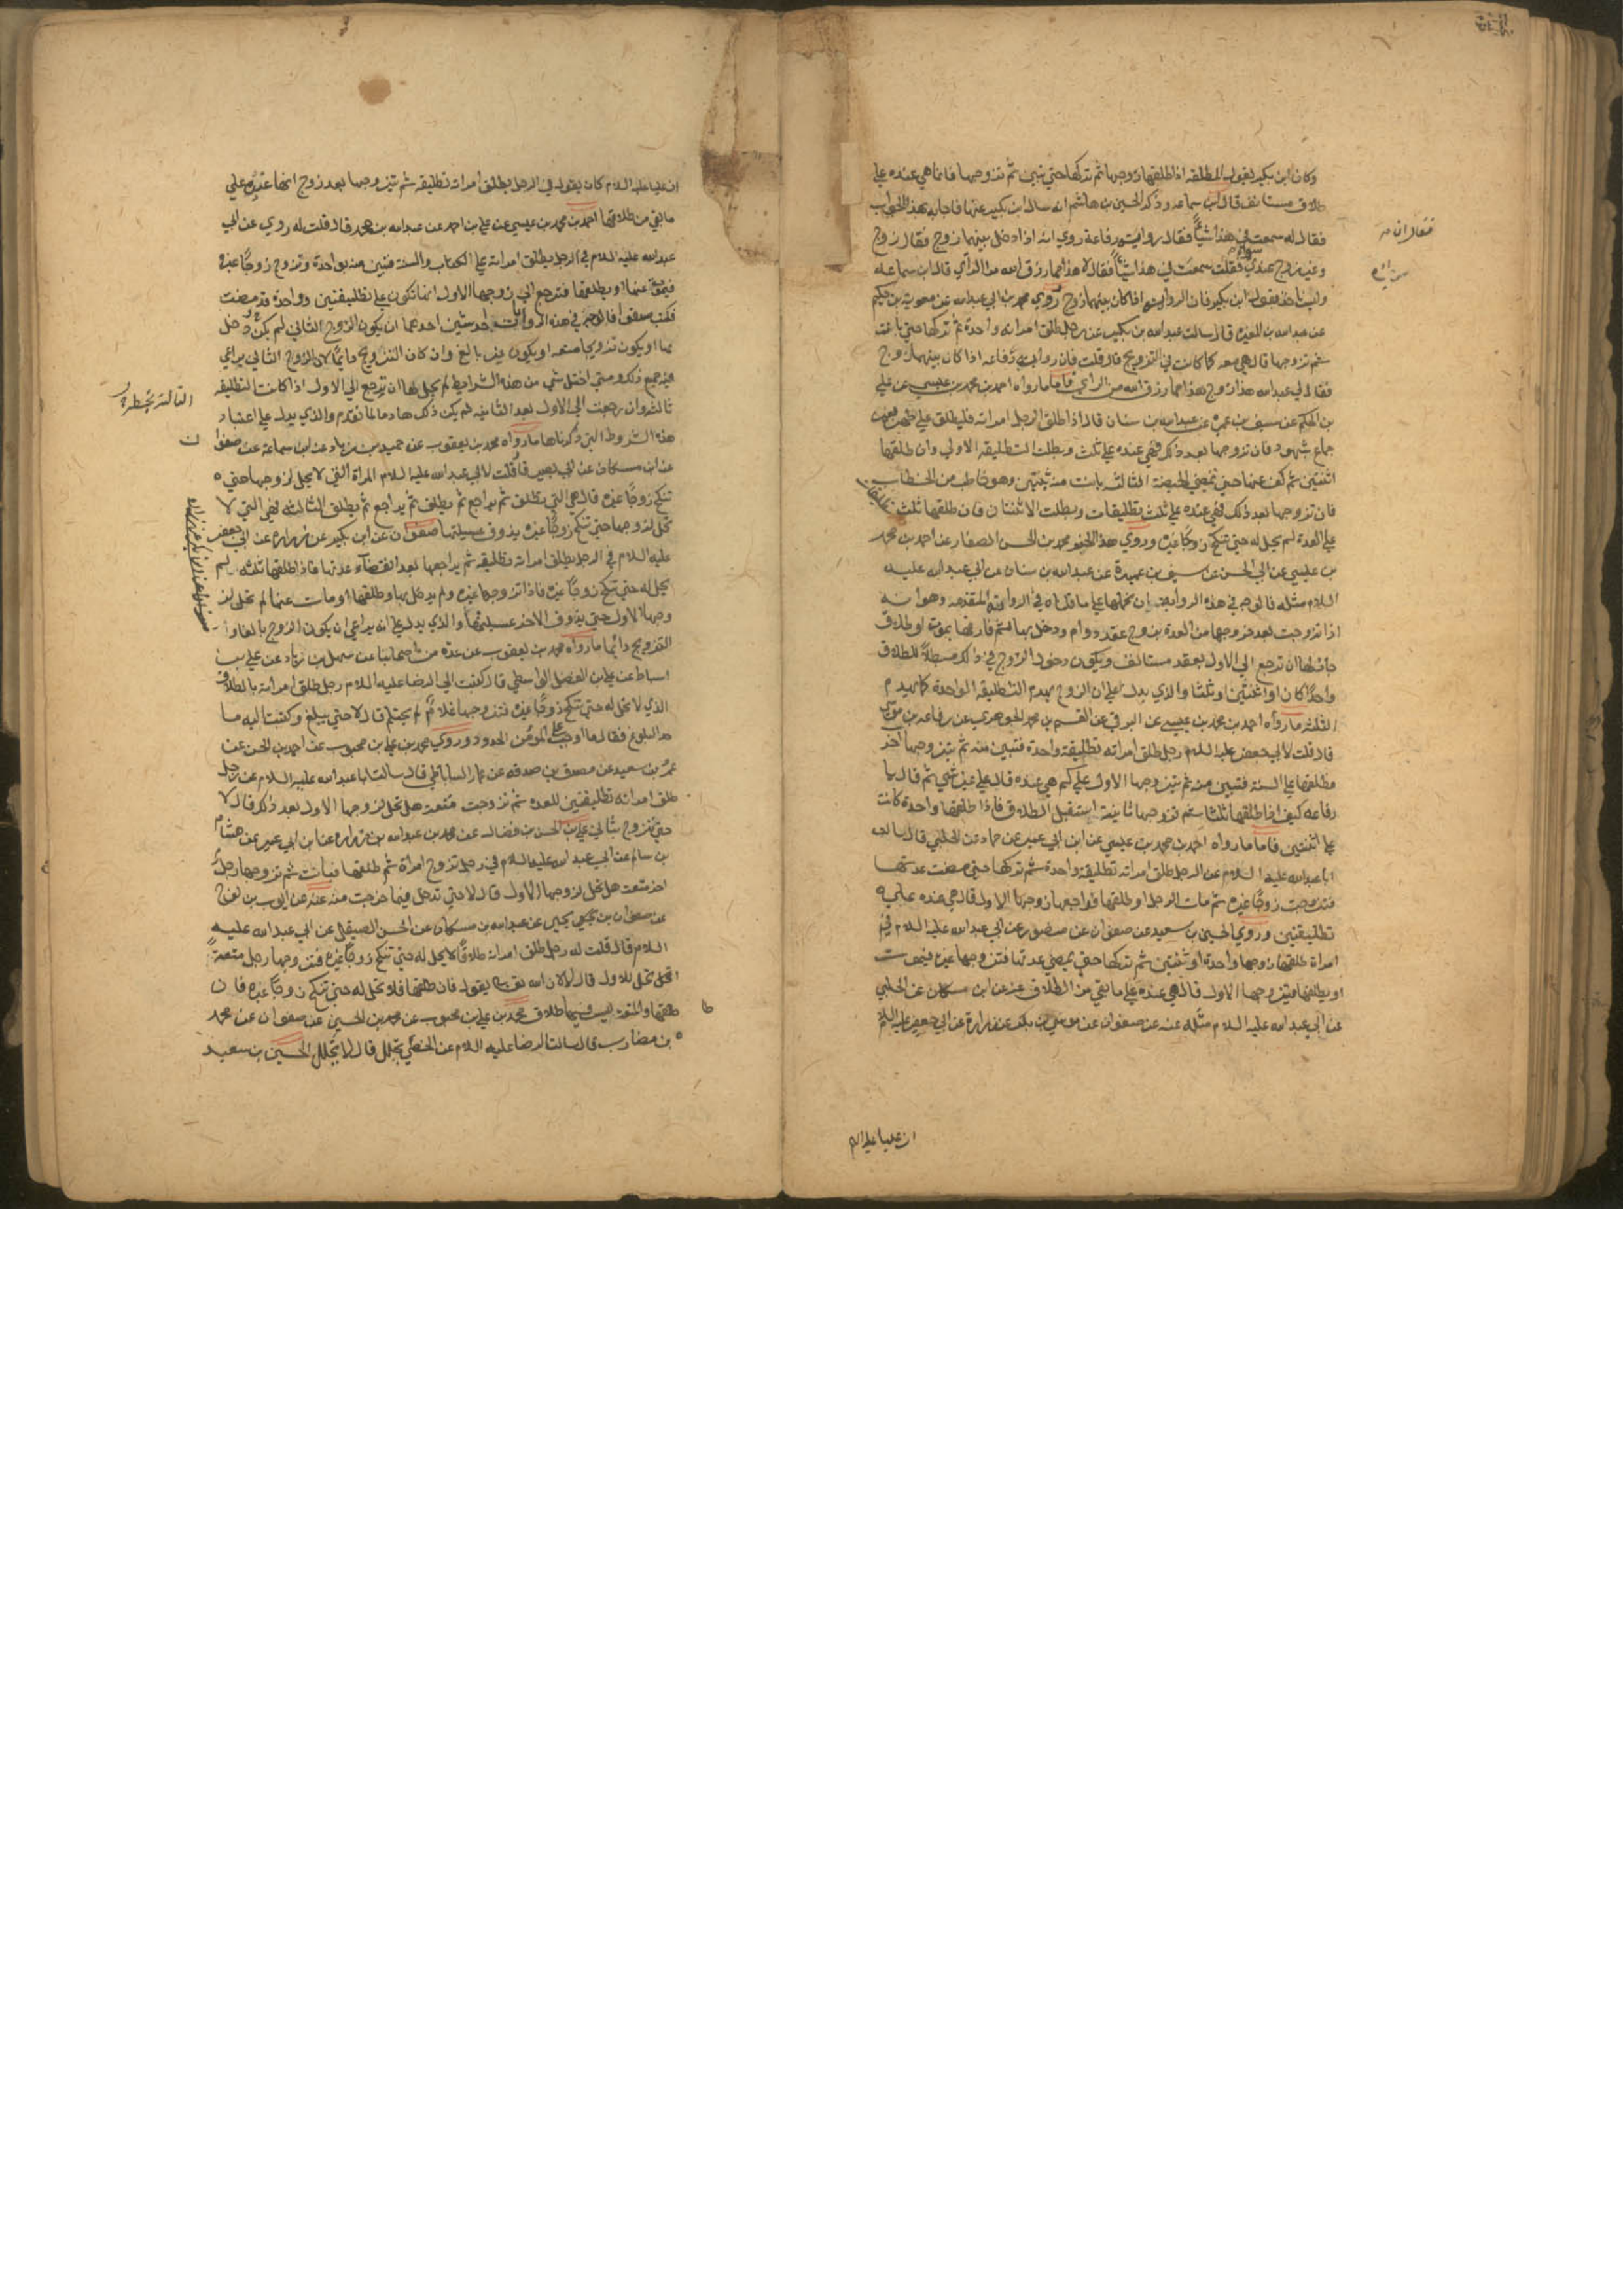 وكان ابن بكير يقول المطلقه اذا طلقها زوجها ثم تركها حتي تبين ثم تزوجها فانما هي عنده علي
طلاق مستانف قال ابن سماعه وذكر الحسين بن هاشم انه سال ابن بكير عنها فاجابه بهذا الجواب
فقال له سمعت في هذا شياً فقال رواية رفاعة فقال ان رفاعة روي انه اذا دخل بينهما زوج فقال زوج
وغير زوج عندي سواء فقلت سمعت في هذا شيئاً فقال لا هذا مما رزق الله من الرأي قال ابن سماعه
وليس ناخذ بقول ابن بكير فان الرواية اذا كان بينهما زوج وروي محمد بن ابي عبدالله عن معوية بن حكيم
عن عبدالله بن المغيره قال سالت عبدالله بن بكير عن رجل طلق امراته واحدة ثم تركها حتي بانت
ثم تزوجها قال هي معه كما كانت في التزويج قال قلت فان رواية رفاعه اذا كان بينهما زوج
فقال لي عبدالله هذا زوج وهذا مما رزق الله من الرأي فاما ما رواه احمد بن محمد بن عيسي عن علي
بن الحكم عن سيف بن عميره عن عبدالله بن سنان قال اذا طلق الرجل امراته فليطلق علي طهر بغير
جماع بشهود فان تزوجها بعد ذلك فهي عنده علي ثلث وبطلت التطليقه الاولي وان طلقها
اثنتين ثم كف عنها حتي تمضي الحيضة الثالثه بانت منه بثنتين وهو خاطب من الخطاب
فان تزوجها بعد ذلك فهي عنده علي ثلث تطليقات وبطلت الاثنتان فان طلقها ثلث تطليقات
علي العدة لم تحل له حتي تنكح زوجاً غيره وروي هذا الخبر محمد بن الحسن الصفار عن احمد بن محمد
بن عيسي عن ابي الحسن عن سيف بن عميرة عن عبدالله بن سنان عن ابي عبدالله عليه
السلام مثله فالوجه في هذه الرواية ان نحملها علي ما قلناه في الرواية المتقدمه وهو انه
اذا تزوجت بعد خروجها من العدة بزوج عقد دوام ودخل بها ثم فارقها بموت او طلاق
جاز لها ان ترجع الي الاول بعقد مستانف ويكون دخول الزوج في ذلك مبطلاً للطلاق
واحداً كان او اثنتين او ثلثا والذي يدل علي ان الزوج يهدم التطليقه الواحدة كما يهدم
الثلثه ما رواه احمد بن محمد بن عيسي عن البرقي عن القسم بن محمد الجوهري عن رفاعه بن موسي
قال قلت لابي جعفر عليه السلام رجل طلق امراته تطليقة واحدة فتبين منه ثم يتزوجها اخر
فطلقها علي السنة فتبين منه ثم يتزوجها الاول علي كم هي عنده قال علي غير شي ثم قال يا
رفاعه كيف اذا طلقها ثلثا ثم تزوجها ثانية استقبل الطلاق فاذا طلقها واحدة كانت
علي اثنتين فاما ما رواه احمد بن محمد بن عيسي عن ابن ابي عمير عن حماد عن الحلبي قال سالت
ابا عبدالله عليه السلام عن الرجل طلق امراته تطليقة واحدة ثم تركها حتي مضت عدتها
فتزوجت زوجاً غيره ثم مات الرجل او طلقها فراجعها زوجها الاول قال هي عنده علي
تطليقتين وروي الحسين بن سعيد عن صفوان عن منصور عن ابي عبدالله عليه السلام في
امراة طلقها زوجها واحدة او ثنتين ثم تركها حتي تمضي عدتها فتزوجها غيره فيموت
او يطلقها فيتزوجها الاول قال هي عنده علي ما بقي من الطلاق عنه عن ابن مسكان عن الحلبي
عن ابي عبدالله عليه السلام مثله عنه عن صفوان عن موسي بن بكر عن زرارة عن ابي جعفر عليه السلام
ان عليا عليه السلم
ان عليا عليه السلام كان يقول في الرجل يطلق امراته تطليقه ثم يتزوجها بعد زوج انها عنده علي
ما بقي من طلاقها احمد بن محمد بن عيسي عن علي بن احمد عن عبدالله بن محمد قال قلت له روي عن ابي
عبدالله عليه السلام في الرجل يطلق امراته علي الكتاب والسنه فتبين منه بواحدة وتزوج زوجاً غيره
فيموت عنها او يطلقها فترجع الي زوجها الاول انها تكون علي تطليقتين وواحدة قد مضت
فكتب صدقوا فالوجه في هذه الروايات احد شيئين احدهما ان يكون الزوج الثاني لم يكن دخل
بها او يكون تزويجا متعه او يكون غير بالغ وان كان التزويج دائماً لان الزوج الثاني يراعي
فيه جميع ذلك ومتي اختل شي من هذه الشرايط لم يحل لها ان ترجع الي الاول اذا كانت التطليقه
ثالثه وان رجعت الي الاول بعد الثانيه لم يكن ذلك هادما لما تقدم والذي يدل علي اعتبار
هذه الشروط التي ذكرناها ما رواه محمد بن يعقوب عن حميد بن زياد عن ابن سماعة عن صفوان
عن ابن مسكان عن ابي بصير قال قلت لابي عبدالله عليه السلام المراة التي لا تحل لزوجها حتي
تنكح زوجاً غيره قال هي التي تطلق ثم يراجع ثم يطلق ثم يراجع ثم يطلق الثالثه فهي التي لا
تحل لزوجها حتي تنكح زوجاً غيره يذوق عسيلتها صفوان عن ابن بكير عن زراره عن ابي جعفر
عليه السلام في الرجل يطلق امراته تطليقه ثم يراجعها بعد انقضاء عدتها فاذا طلقها ثلثه لم
تحل له حتي تنكح زوجاً غيره فاذا تزوجها غيره ولم يدخل بها وطلقها او مات عنها لم تحل لز
وجها الاول حتي يذوق الاخر عسيلتها والذي يدل علي انه يراعي ان يكون الزوج بالغا وا
التزويج دائما ما رواه محمد بن يعقوب عن عدة من اصحابنا عن سهل بن زياد عن علي بن
اسباط عن علي بن الفضل الواسطي قال كتبت الي الرضا عليه السلام رجل طلق امراته بالطلاق
الذي لا تحل له حتي تنكح زوجاً غيره فتزوجها غلام لم يحتلم قال لا حتي يبلغ وكتبت اليه ما
حد البلوغ فقال ما اوجب علي المؤمن الحدود وروي محمد بن علي بن محبوب عن احمد بن الحسن عن
عمرو بن سعيد عن مصدق بن صدقه عن عمار الساباطي قال سالت ابا عبدالله عليه السلام عن رجل
طلق امراته تطليقتين للعده ثم تزوجت متعة هل تحل لزوجها الاول بعد ذلك قال لا
حتي تزوج بثالي علي بن الحسن بن فضال عن محمد بن عبدالله بن زراره عن ابن ابي عمير عن هشام
بن سالم عن ابي عبدالله عليه السلام في رجل تزوج امراة ثم طلقها فبانت ثم تزوجها رجل
اخر متعة هل تحل لزوجها الاول قال لا حتي تدخل فيما خرجت منه عنه عن ايوب بن نوح
عن صفوان بن يحيي عن عبدالله بن مسكان عن الحسن الصيقل عن ابي عبدالله عليه
السلام قال قلت له رجل طلق امراته طلاقاً لا تحل له حتي تنكح زوجاً غيره فتزوجها رجل متعةً
اتحل للاول قال لا لان الله تعالي يقول فان طلقها فلا تحل له حتي تنكح زوجاً غيره فان
طلقها والمتعة ليس فيها طلاق محمد بن علي بن محبوب عن محمد بن الحسين عن صفوان عن محمد
بن مضارب قال سالت الرضا عليه السلام عن الخصي يحلل قال لا يحلل الحسين بن سعيد